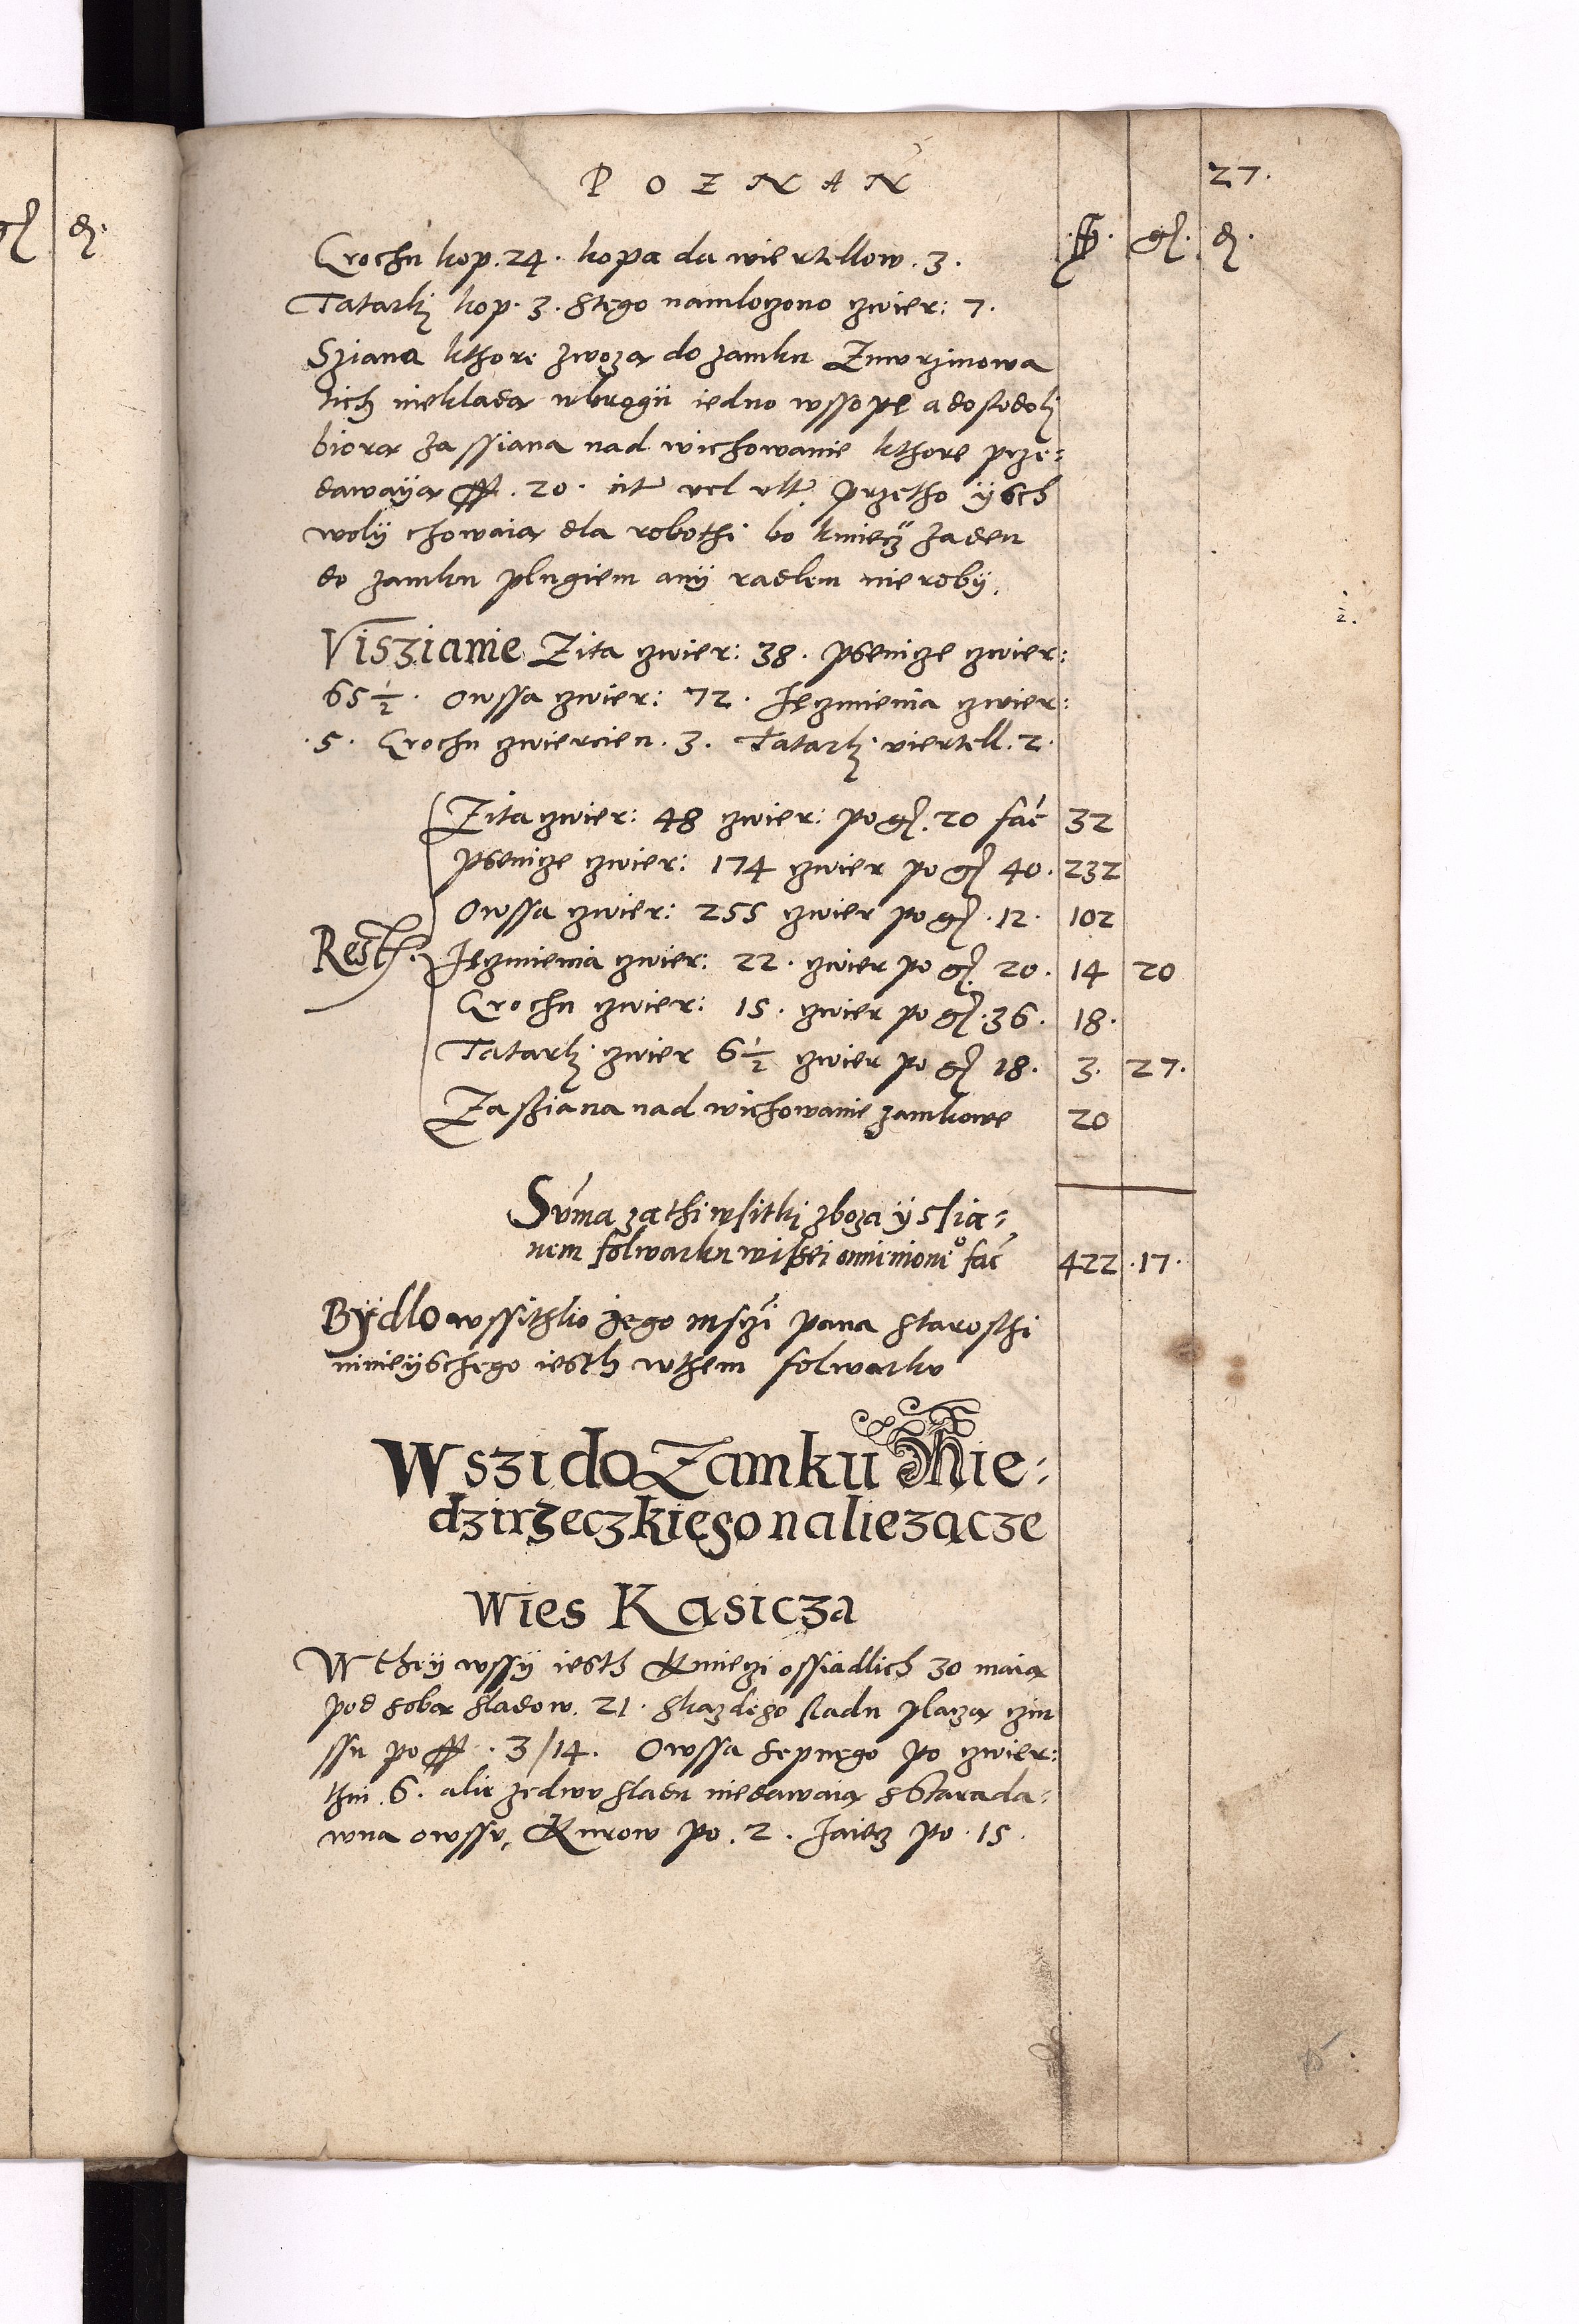 POZNAN
27.
fl. gr. d.
Grochu kop. 24. kopa da wiertellow. 3.
Tatarki kop. 3. Stego namloczono czwier: 7.
Sziana kthore zwoza do zamku
nich niekladą wbrogii iedno wssope
biorą za ssiana nad wichowanie kthore prze-
dawayą fl. 20. Przetho ysch
woly chowaią dla robothi bo kmiecz zaden
do zamku plugiem any radlem nieroby.
Viszianie Zita czwier: 38. psenicze czwier:
65 ½. Owssa czwier: 72. Jęczmienia czwier:
5. Grochu czwiercien. 3. Tatarki viertell. 2.
Resth:
Zita czwier: 48 czwier: po gr. 20 fac 32
psenicze czwier: 174 czwier po gr 40. 232
Owssa czwier: 255 czwier po gr. 12. 102
Jęczmienia czwier: 22. czwier po gr. 20. 14 20
Grochu czwier: 15. czwier po gr. 36. 18.
Tatarki czwier 6 ½ czwier po gr 18. 3. 27.
Za ssiana nad wichowanie zamkowe 20
Suma za thi wsitki zboza y s ssia-
nem folwarku wissei fac 422 .17.
Bydlo wssithko jego msczi pana starosthi
ninieyschego iesth wthem folwarku
Wszi do Zamku Mie-
dzirzeczkięgo naliezącze
Wies Kasicza
W they wssy iesth Kmieczi ossiadlich 30 maią
pod sobą sladow. 21. skazdęgo sladu placzą czin
ssu po fl. 3/14. Owssa sepnęgo po czwier:
thni. 6. alie zedwu sladu niedawaią sstarada-
wna owssu, Kurow po. 2. Jaiecz po. 15.